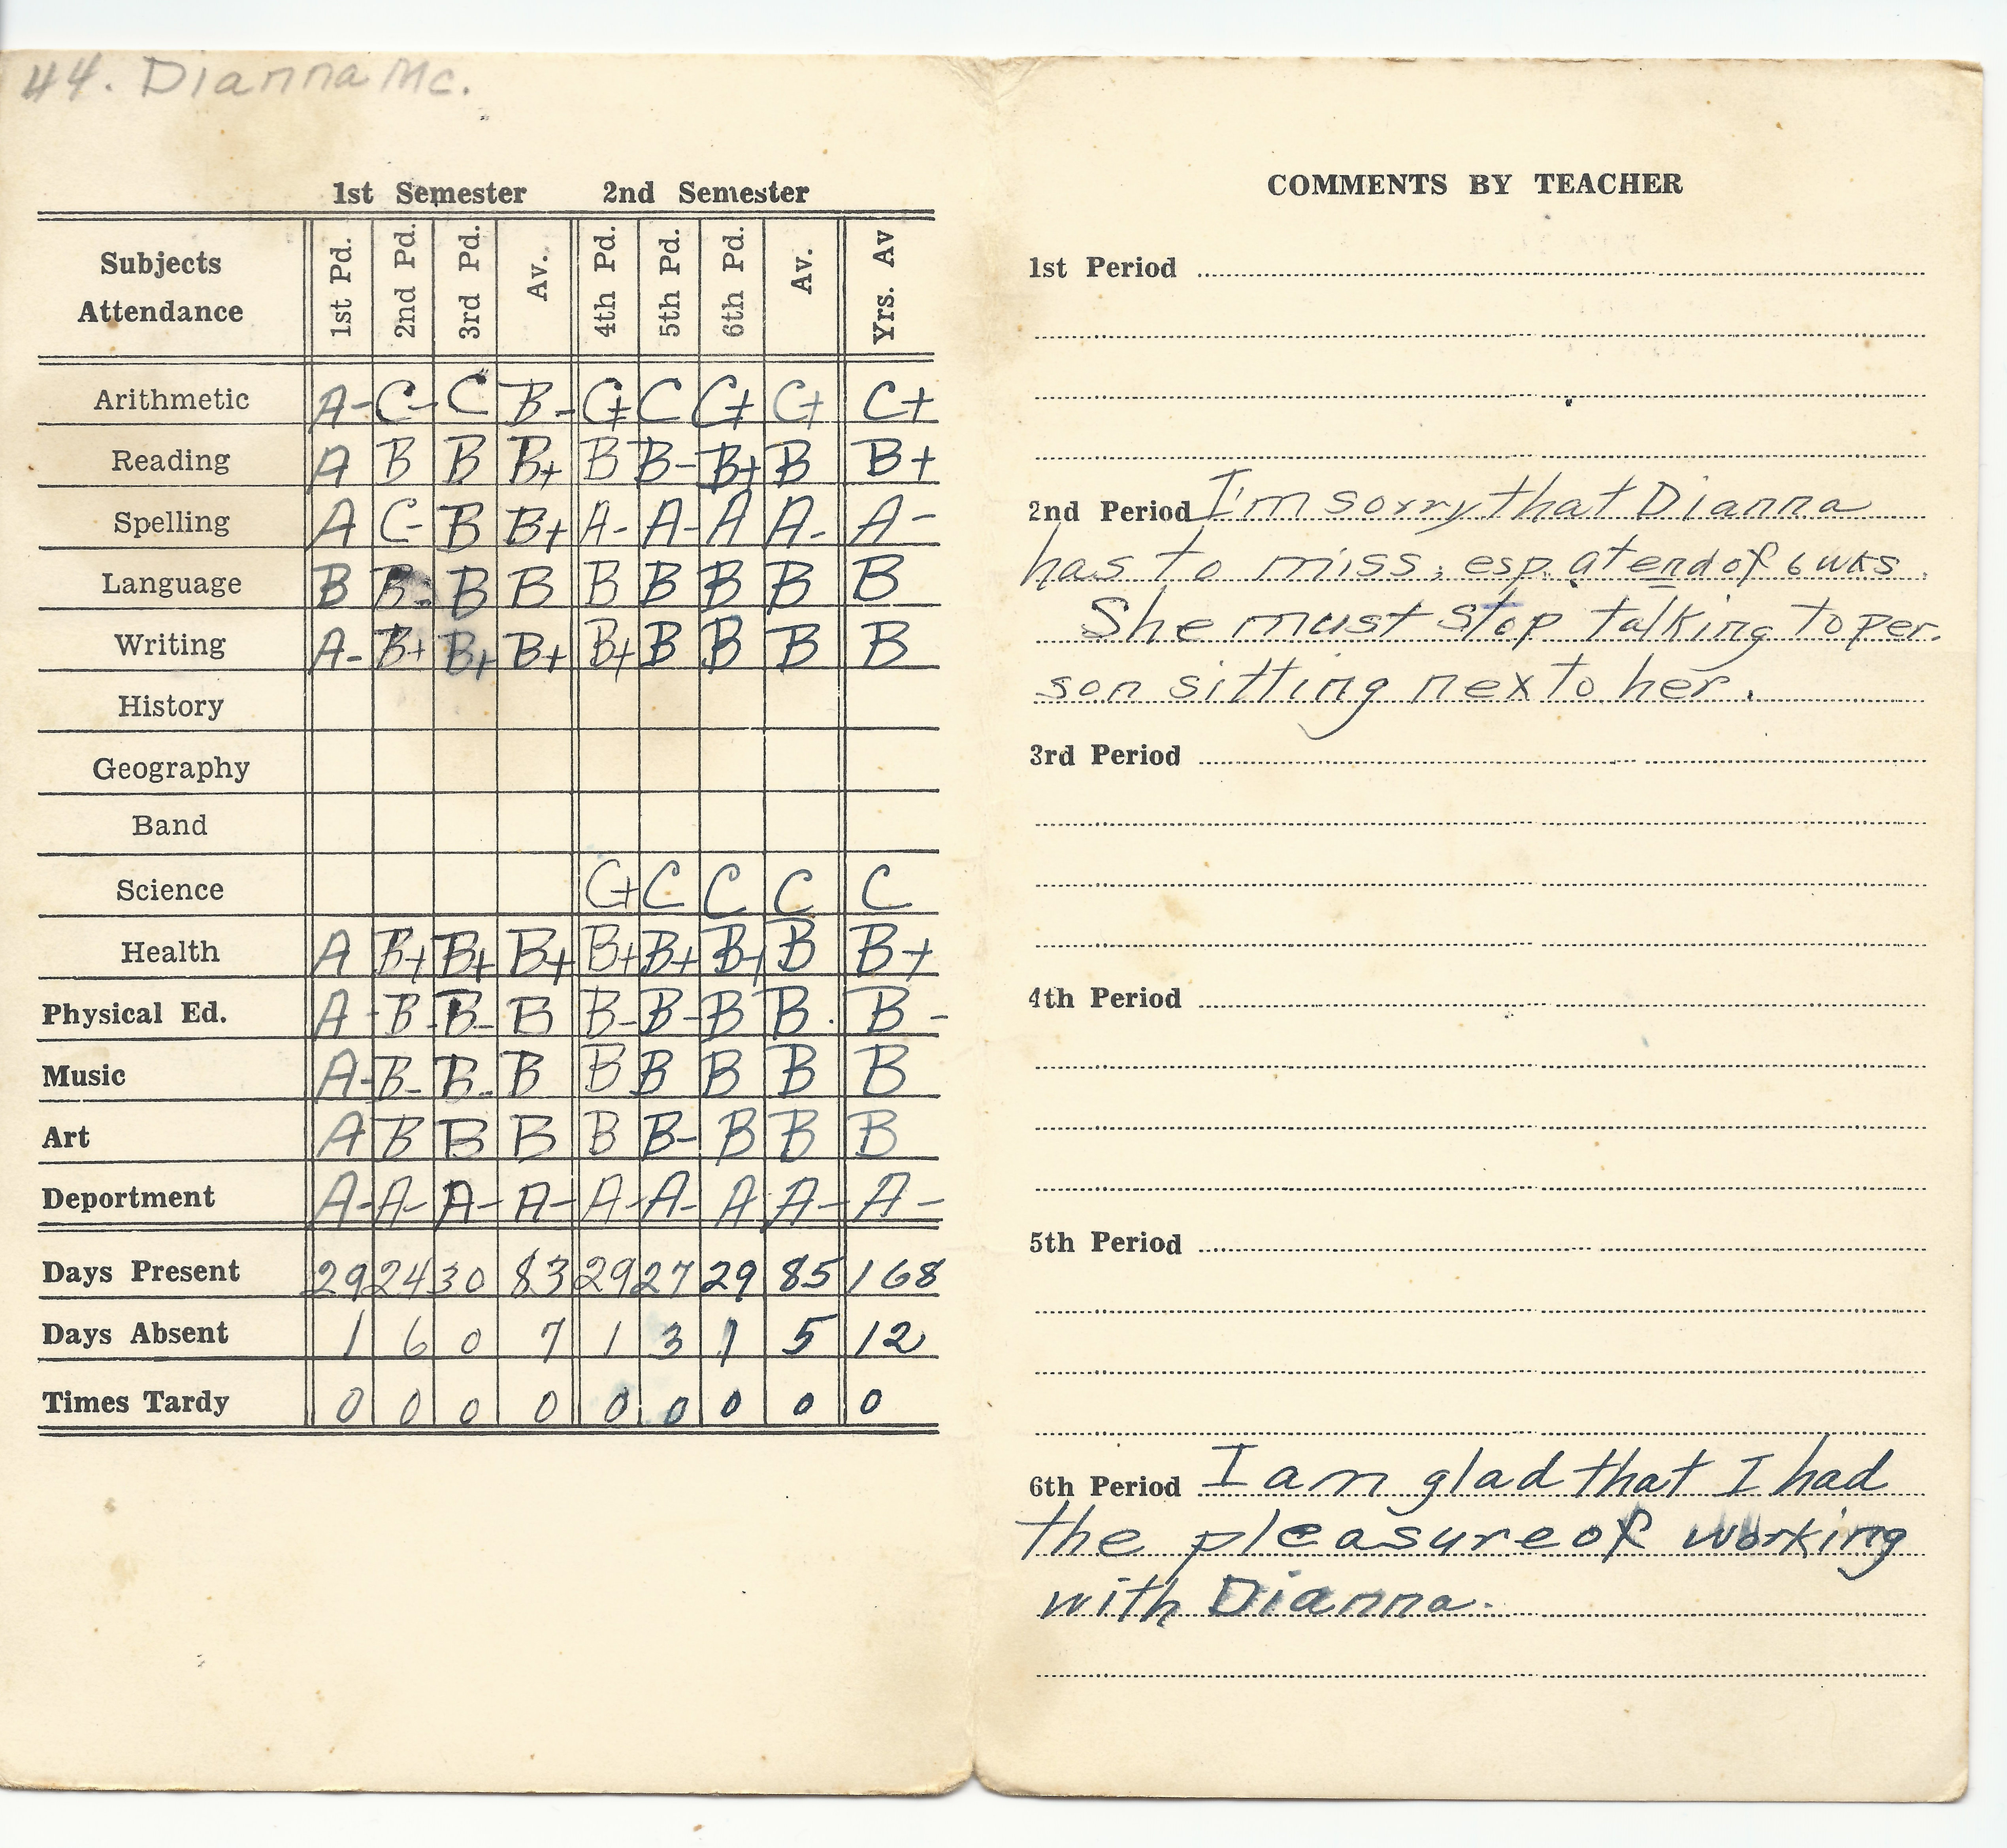 44. Dianna Mc.
1st Semester 2nd Semester
Subjects Attendance 1st Pd. 2nd Pd. 3rd Pd. Av. 4th Pd. 5th Pd. 6th Pd. Av. Yrs. Av
Arithmetic A- C- C B- C+ C C+ C+ C+
Reading A B B B+ B B- B+ B B+
Spelling A C- B B+ A- A- A A- A-
Language B B- B B B B B B B
Writing A- B+ B+ B+ B+ B B B B
History
Geography
Band
Science C+ C C C C
Health A B+ B+ B+ B+ B+ B+ B B+
Physical Ed. A- B- B- B B- B- B B- B-
Music A- B- B- B B B B B B
Art A B B B B B- B B B
Deportment A- A- A- A- A- A- A A- A-
Days Present 29 24 30 83 29 27 29 85 168
Days Absent 1 6 0 7 1 3 1 5 12
Times Tardy 0 0 0 0 0 0 0 0 0
COMMENTS BY TEACHER
1st Period
2nd Period I'm sorry that Dianna
has to miss, esp. at end of 6 wks.
She must stop talking to per-
son sitting next to her.
3rd Period
4th Period
5th Period
6th Period I am glad that I had
the pleasure of working
with Dianna.